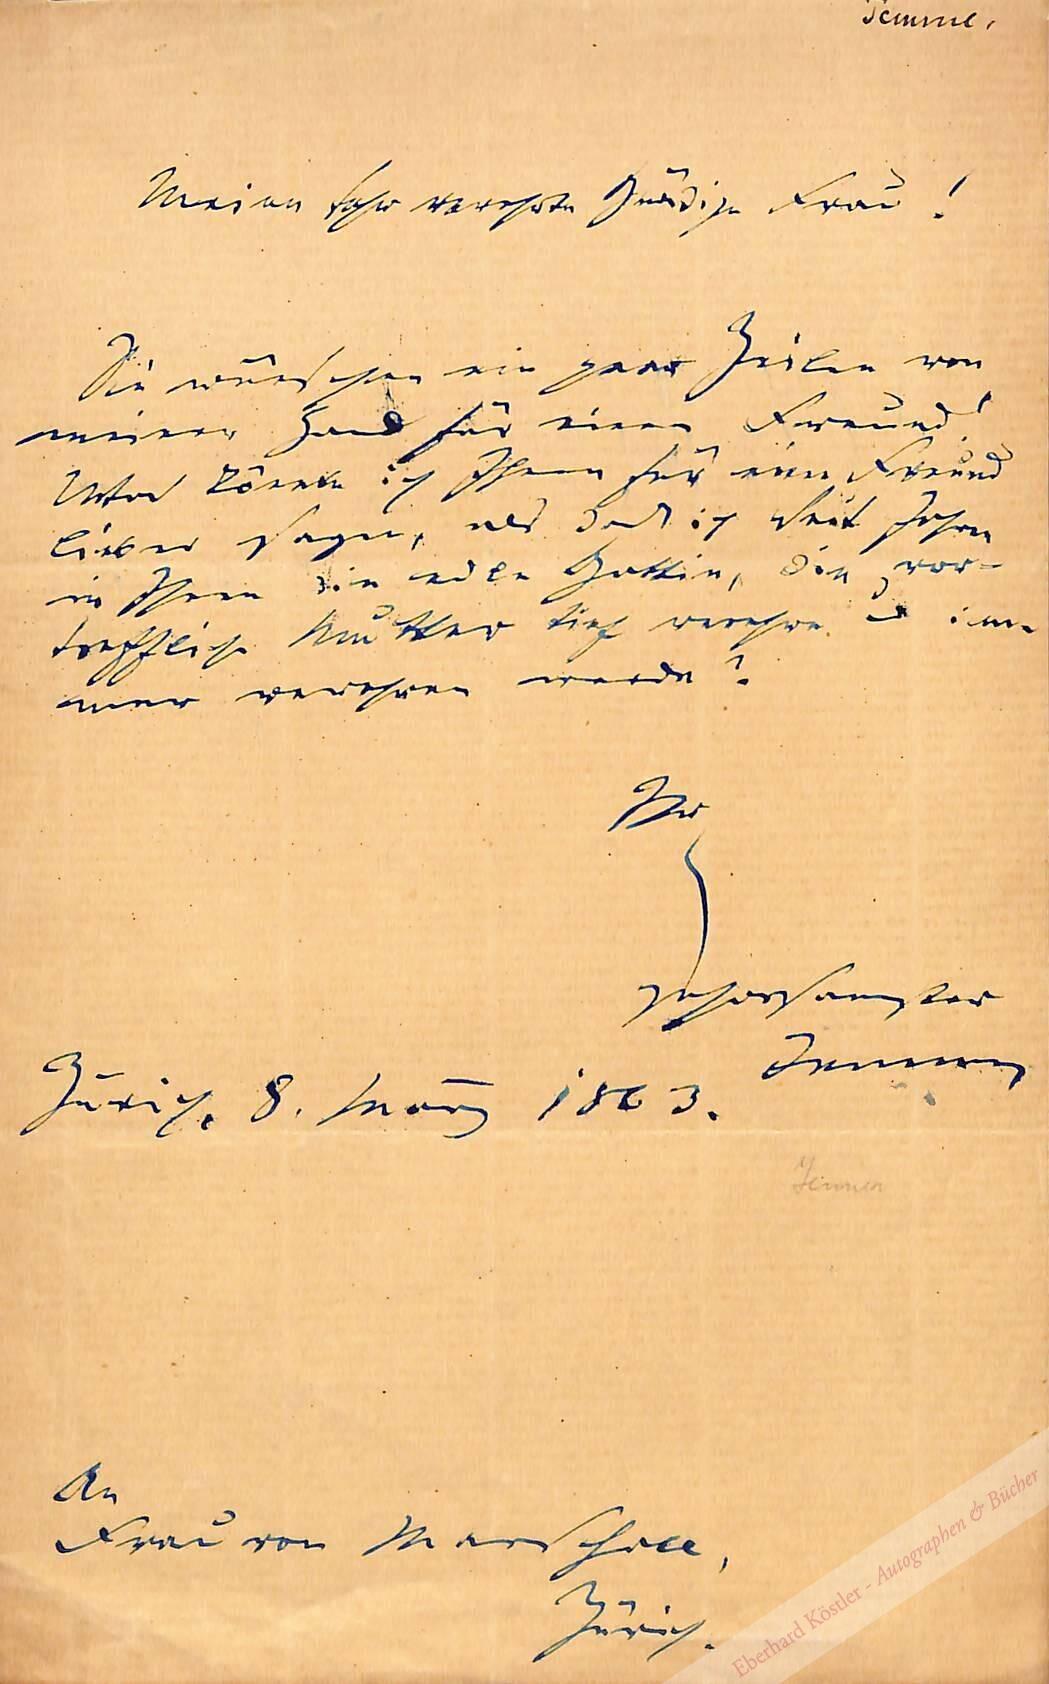 Temme.
Meine sehr verehrte Gnädige Frau!
Sie wünschen ein paar Zeilen von
meiner Hand für einen Freund!
Was könnte ich Ihnen für einen Freund
lieber sagen, als daß ich seit Jahren
in Ihnen die edle Gattin, die vor-
treffliche Mutter tief verehre und im-
mer verehren werde?
Ihr
gehorsamster
Temme
Zürich, 8. März 1863.
An
Frau von Marschall,
Zürich.
Eberhard Köstler - Autographen & Bücher